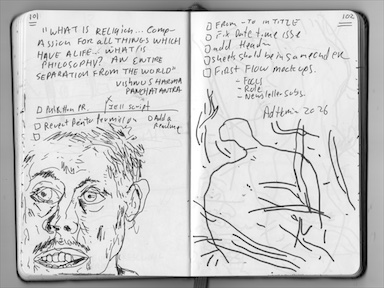 101
"WHAT IS RELIGION... COMP-
ASSION FOR ALL THINGS WHICH
HAVE A LIFE. WHAT IS
PHILOSOPHY? AN ENTIRE
SEPARATION FROM THE WORLD"
VISHNU SHARMA
PANCHATANTRA
PR.
Jell Script
Revert
Add a
Reading
102
FROM - TO in TITLE
Fix Date time issue
add Header
sheets should be in same order
First Flow mockups.
- FAQs
- Role
- Newsletter subs.
2026